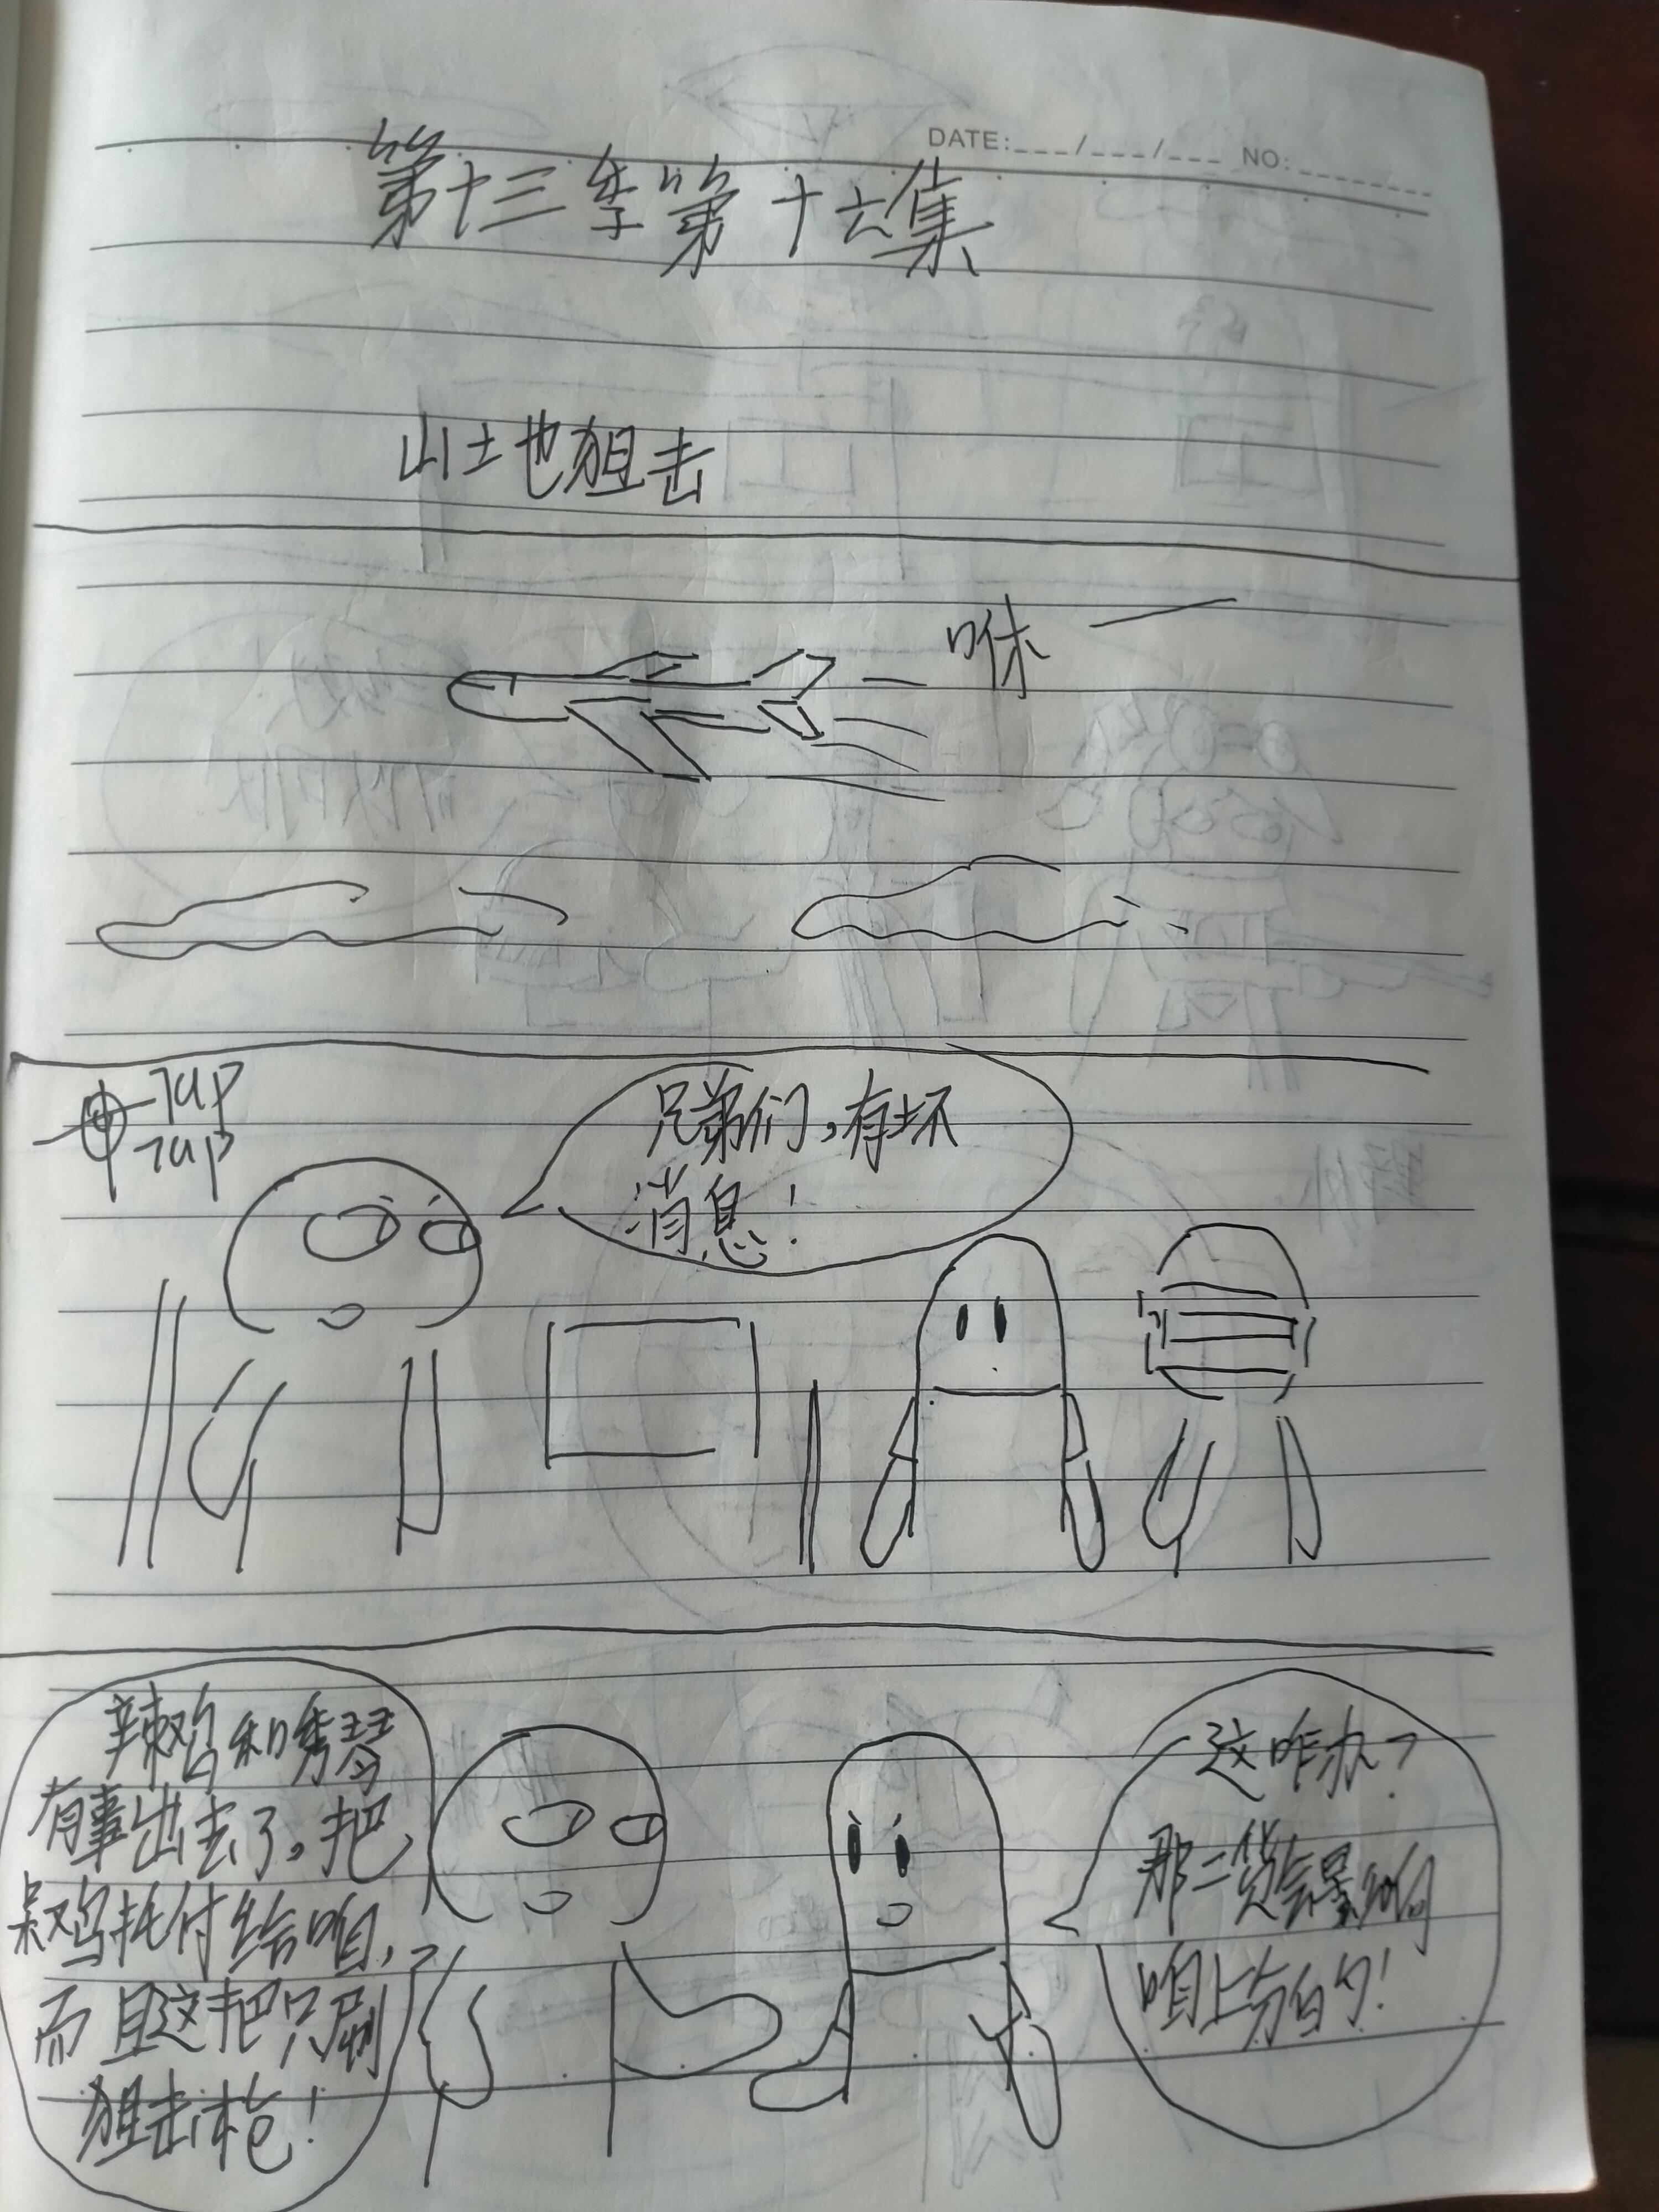 DATE:___/___/___ NO:________
第十三季第十六集
山土也狙击
咻
TAP
TAP
兄弟们,有坏
消息!
辣鸡和
有事出去了。把
呆鸡托付给咱,
而且这把只刷
狙击枪!
这咋办?
那二货会暴
咱上分的!